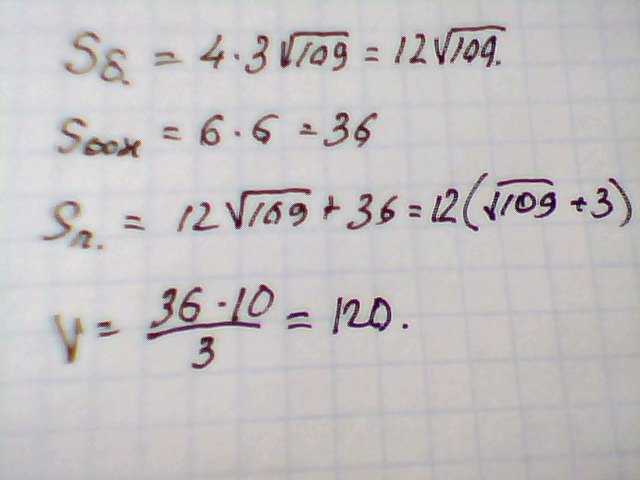 Sб. = 4·3√109 = 12√109.
Sосн = 6·6 = 36
Sп. = 12√109 + 36 = 12(√109 + 3)
V = 36·10/3 = 120.